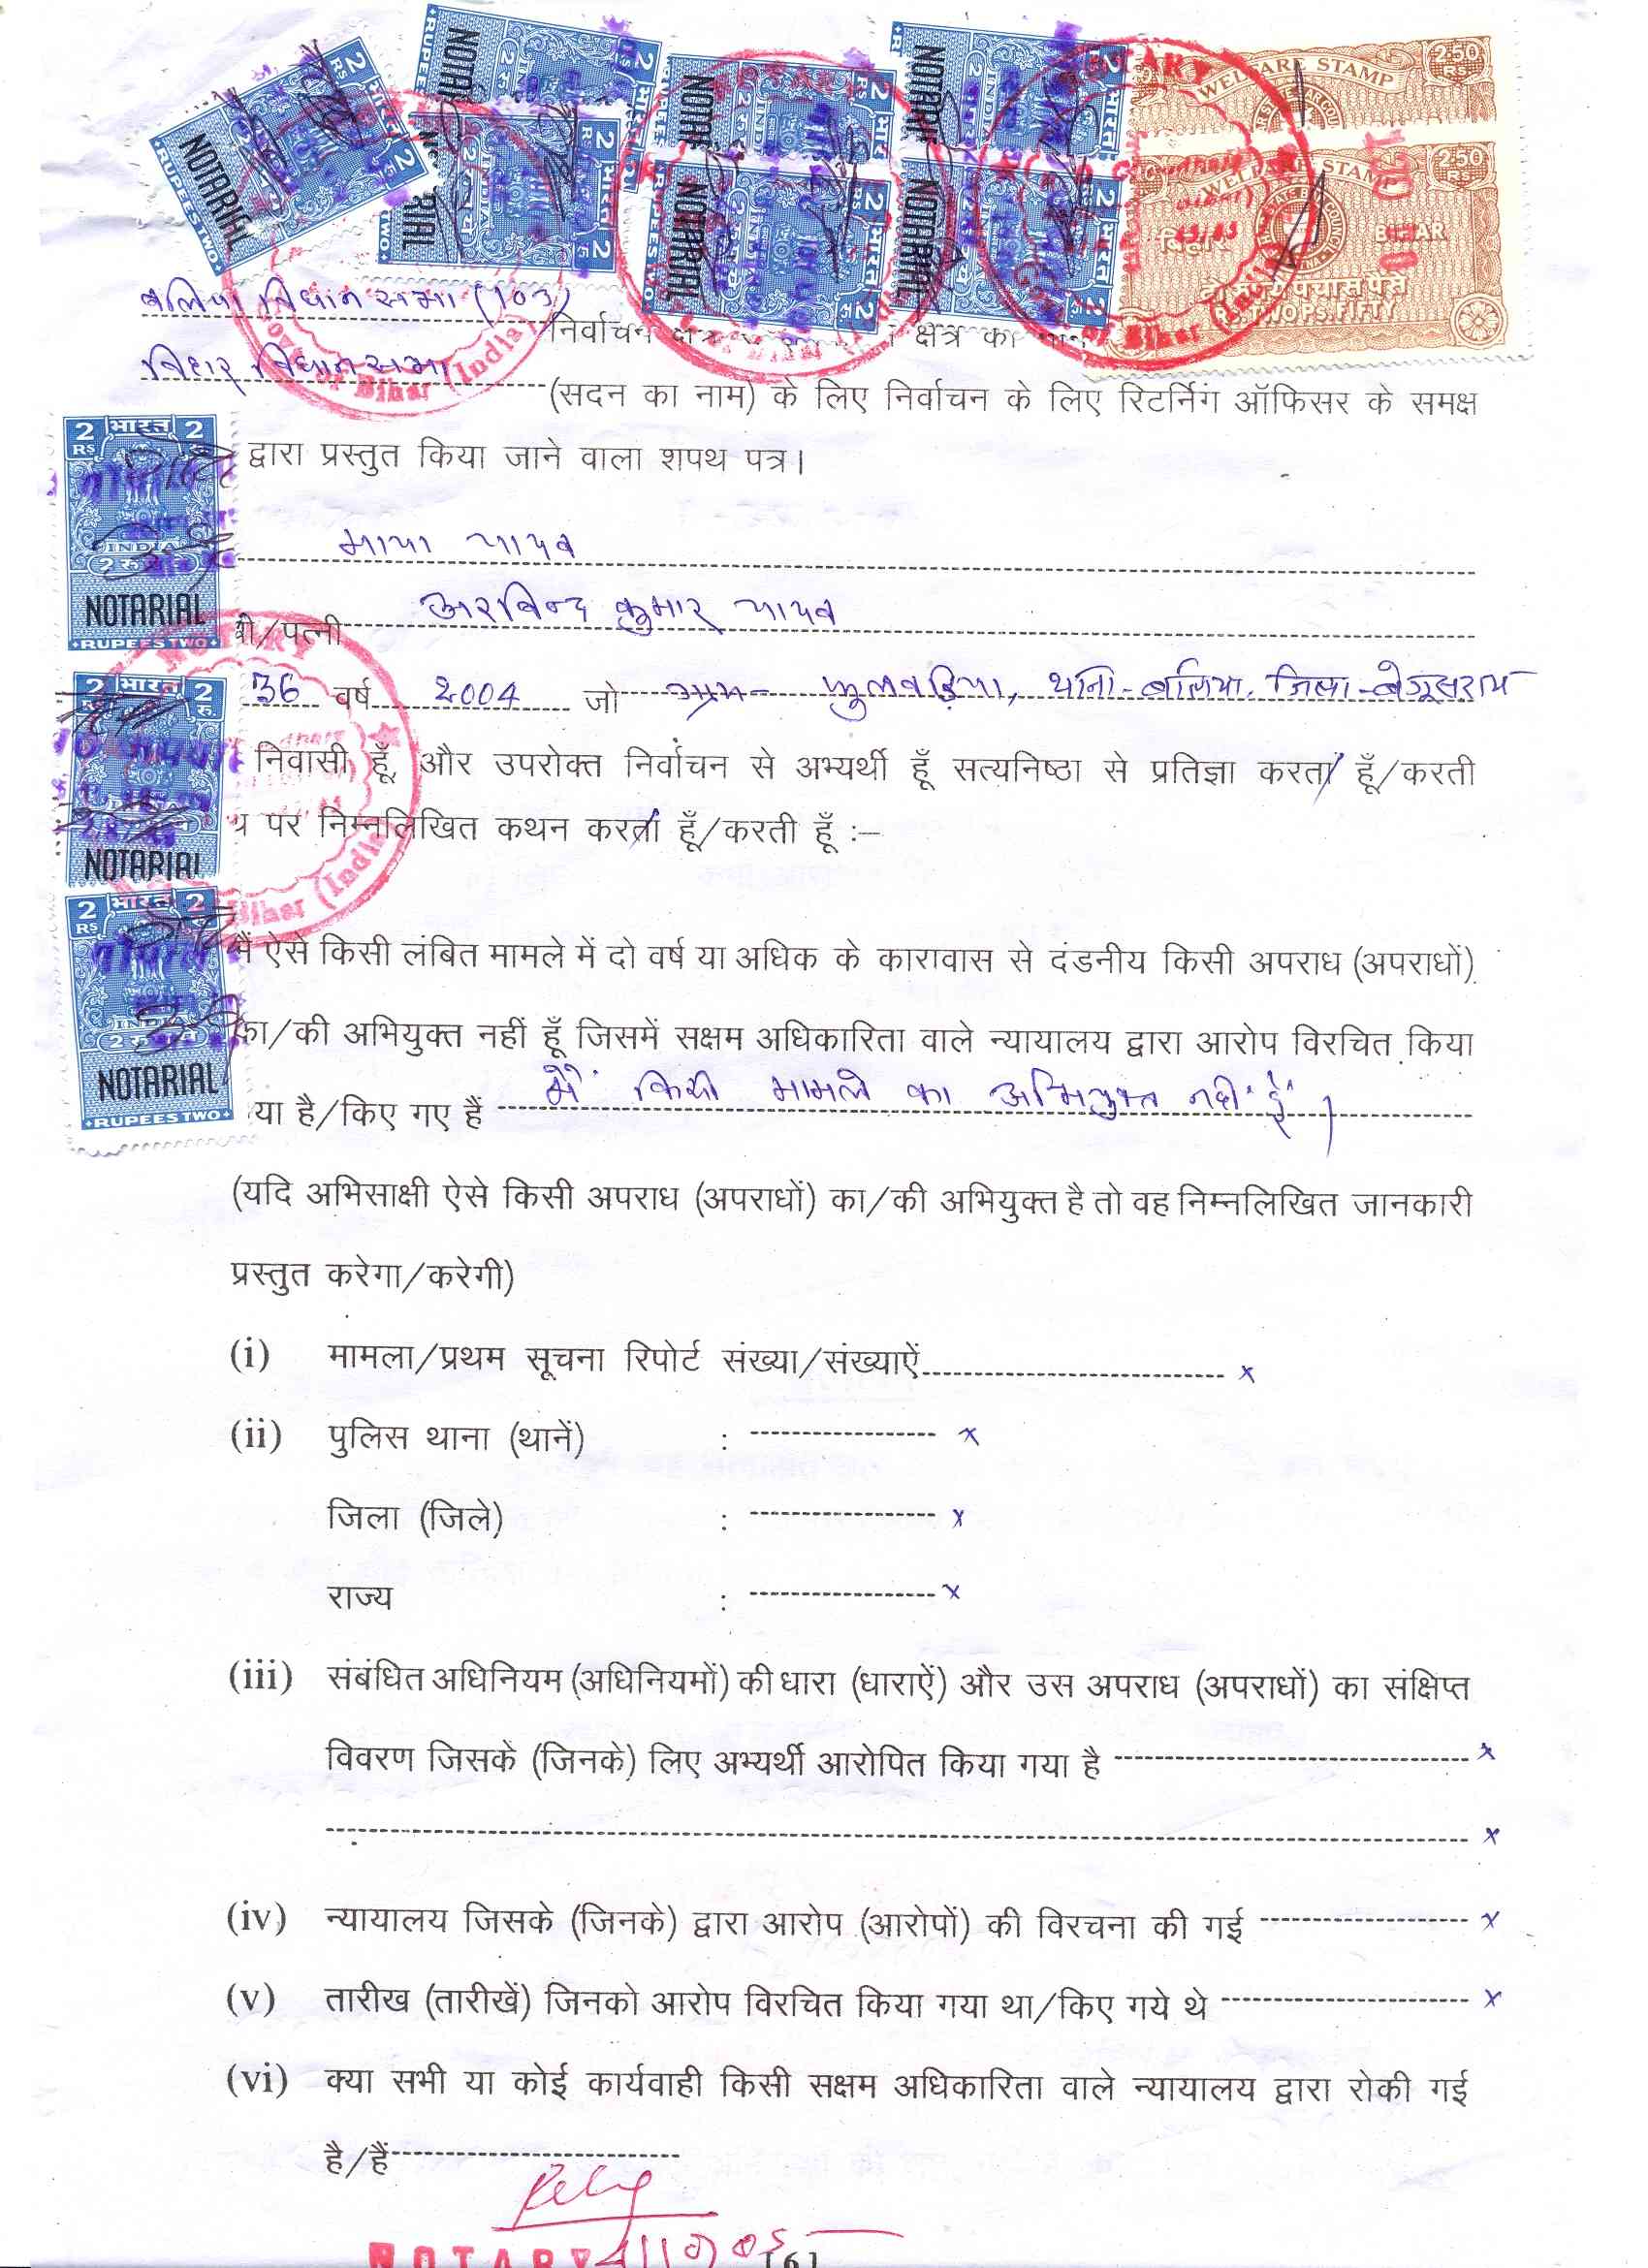 WELFARE STAMP
2.50 RS
WELFARE STAMP
2.50 RS
बिहार BIHAR
RS.TWO PS.FIFTY
2 RS भारत 2 रु. INDIA NOTARIAL RUPEES TWO
बलिया विधान सभा (103)
निर्वाचन
बिहार विधान सभा
(सदन का नाम) के लिए निर्वाचन के लिए रिटर्निंग ऑफिसर के समक्ष
द्वारा प्रस्तुत किया जाने वाला शपथ पत्र।
माया यादव
/पत्नी अरविन्द कुमार यादव
36 वर्ष 2004 जो ग्राम- फुलवड़िया, थाना-बलिया, जिला-बेगूसराय
निवासी हूँ, और उपरोक्त निर्वाचन से अभ्यर्थी हूँ सत्यनिष्ठा से प्रतिज्ञा करता हूँ/करती
पर निम्नलिखित कथन करता हूँ/करती हूँ :–
मैं ऐसे किसी लंबित मामले में दो वर्ष या अधिक के कारावास से दंडनीय किसी अपराध (अपराधों)
का/की अभियुक्त नहीं हूँ जिसमें सक्षम अधिकारिता वाले न्यायालय द्वारा आरोप विरचित किया
या है/किए गए हैं मैं किसी मामले का अभियुक्त नहीं हूँ।
(यदि अभिसाक्षी ऐसे किसी अपराध (अपराधों) का/की अभियुक्त है तो वह निम्नलिखित जानकारी
प्रस्तुत करेगा/करेगी)
(i) मामला/प्रथम सूचना रिपोर्ट संख्या/संख्याऐं x
(ii) पुलिस थाना (थानें) : x
जिला (जिले) : x
राज्य : x
(iii) संबंधित अधिनियम (अधिनियमों) की धारा (धाराऐं) और उस अपराध (अपराधों) का संक्षिप्त
विवरण जिसके (जिनके) लिए अभ्यर्थी आरोपित किया गया है x
x
(iv) न्यायालय जिसके (जिनके) द्वारा आरोप (आरोपों) की विरचना की गई x
(v) तारीख (तारीखें) जिनको आरोप विरचित किया गया था/किए गये थे x
(vi) क्या सभी या कोई कार्यवाही किसी सक्षम अधिकारिता वाले न्यायालय द्वारा रोकी गई
है/हैं
NOTARY [6]